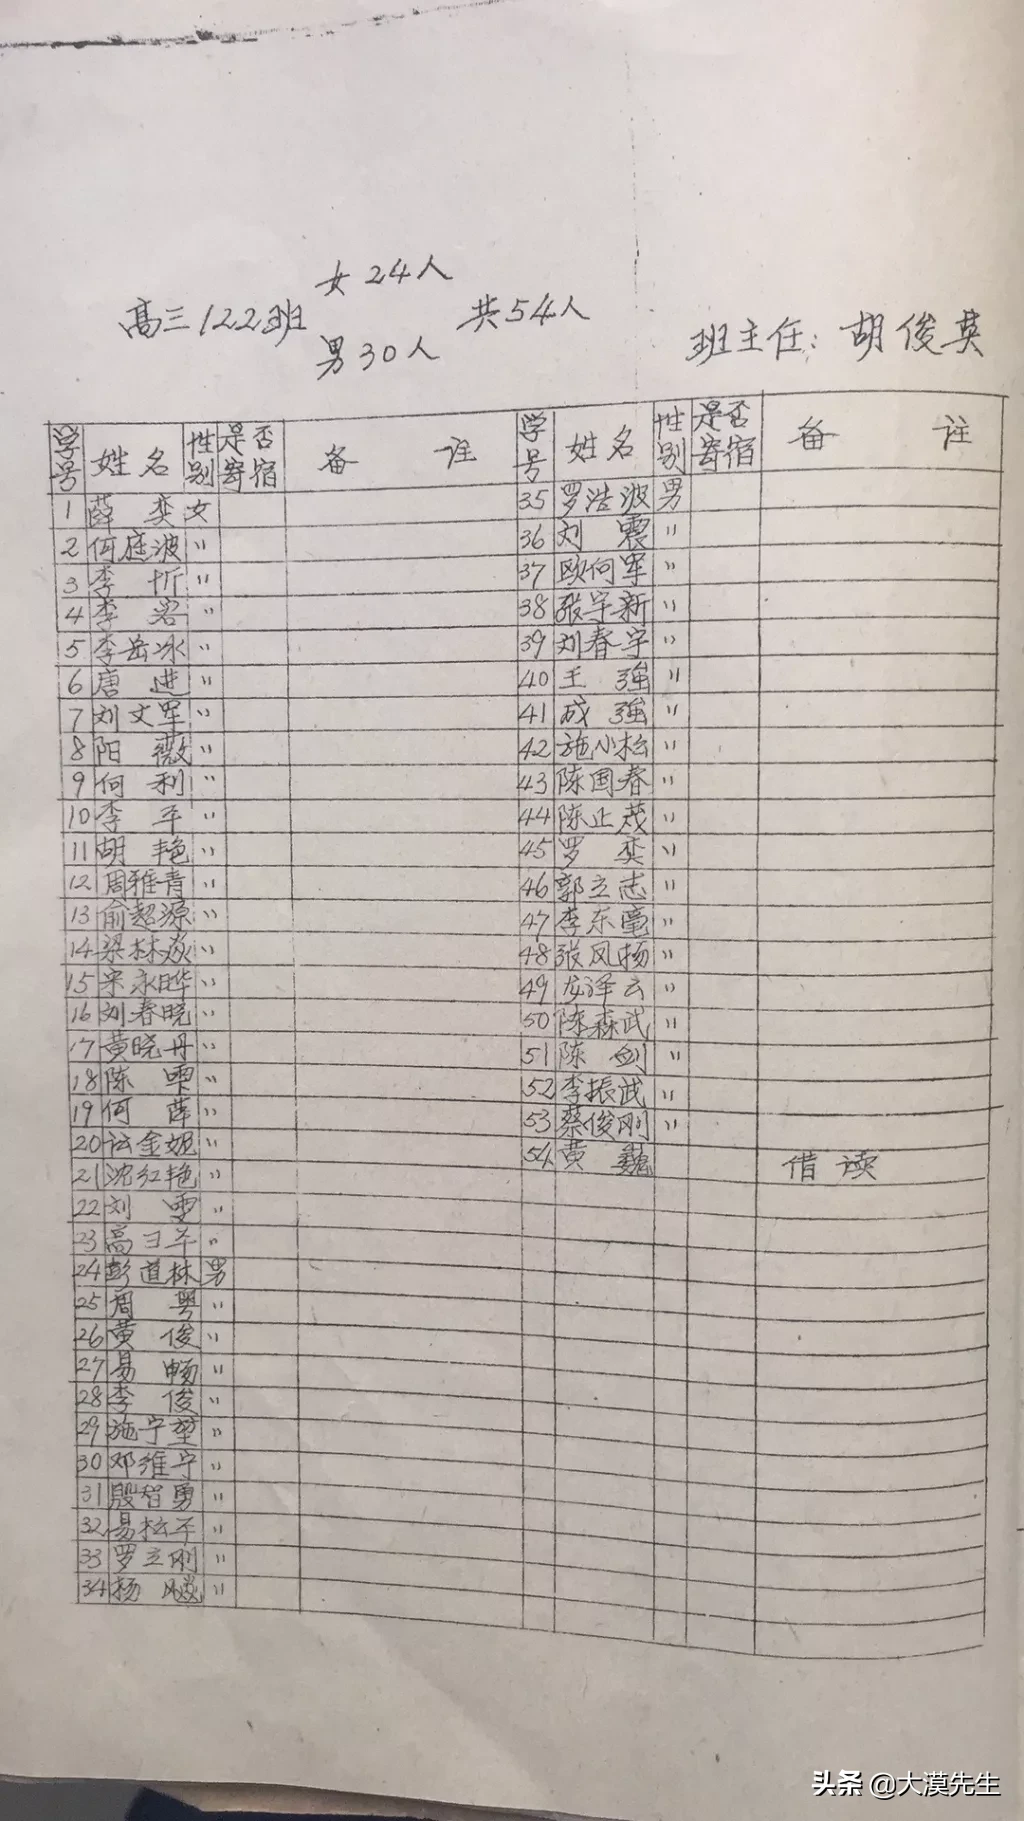 女24人
高三122班 共54人
男30人
班主任：胡俊英
学号 姓名 性别 是否寄宿 备注 学号 姓名 性别 是否寄宿 备注
1 薛奕 女
2 何庭波 〃
3 李忻 〃
4 李容 〃
5 李岳冰 〃
6 唐进 〃
7 刘文军 〃
8 阳薇 〃
9 何利 〃
10 李平 〃
11 胡艳 〃
12 周雅青 〃
13 俞超源 〃
14 梁林焱 〃
15 宋永晔 〃
16 刘春晓 〃
17 黄晓丹 〃
18 陈雪 〃
19 何薛 〃
20 金妮 〃
21 沈红艳 〃
22 刘雯 〃
23 高 〃
24 彭道林 男
25 周粤 〃
26 黄俊 〃
27 易畅 〃
28 李俊 〃
29 施宁堃 〃
30 邓维宁 〃
31 殷智勇 〃
32 易松平 〃
33 罗立刚 〃
34 杨飚 〃
35 罗浩波 男
36 刘震 〃
37 欧何军 〃
38 张宇新 〃
39 刘春宇 〃
40 王强 〃
41 成强 〃
42 施小松 〃
43 陈国春 〃
44 陈正茂 〃
45 罗奕 〃
46 郭立志 〃
47 李东毫 〃
48 张凤扬 〃
49 龙泽云 〃
50 陈森武 〃
51 陈剑 〃
52 李振武 〃
53 蔡俊刚 〃
54 黄巍 借读
头条 @大漠先生